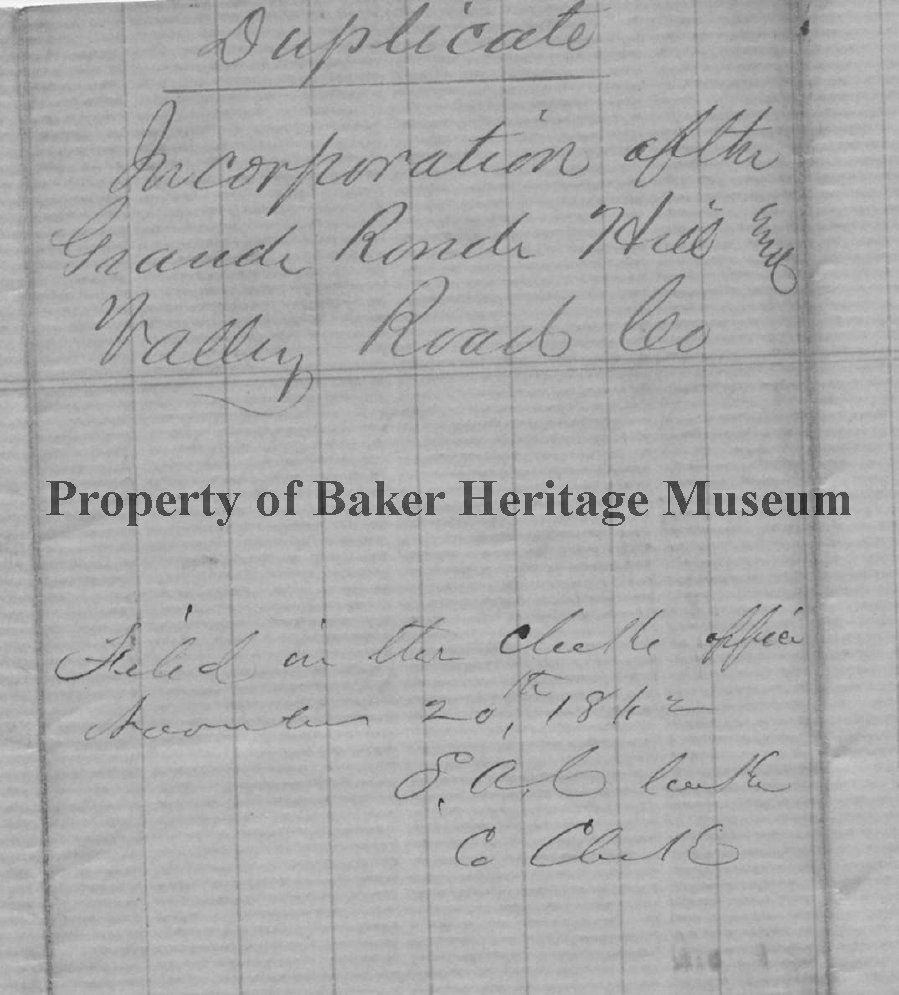 Duplicate
Incorporation of the
Grande Ronde Hill and
Valley Road Co
Property of Baker Heritage Museum
Filed in the Clerks office
November 20th, 1862
E. A. C
Co Clerk